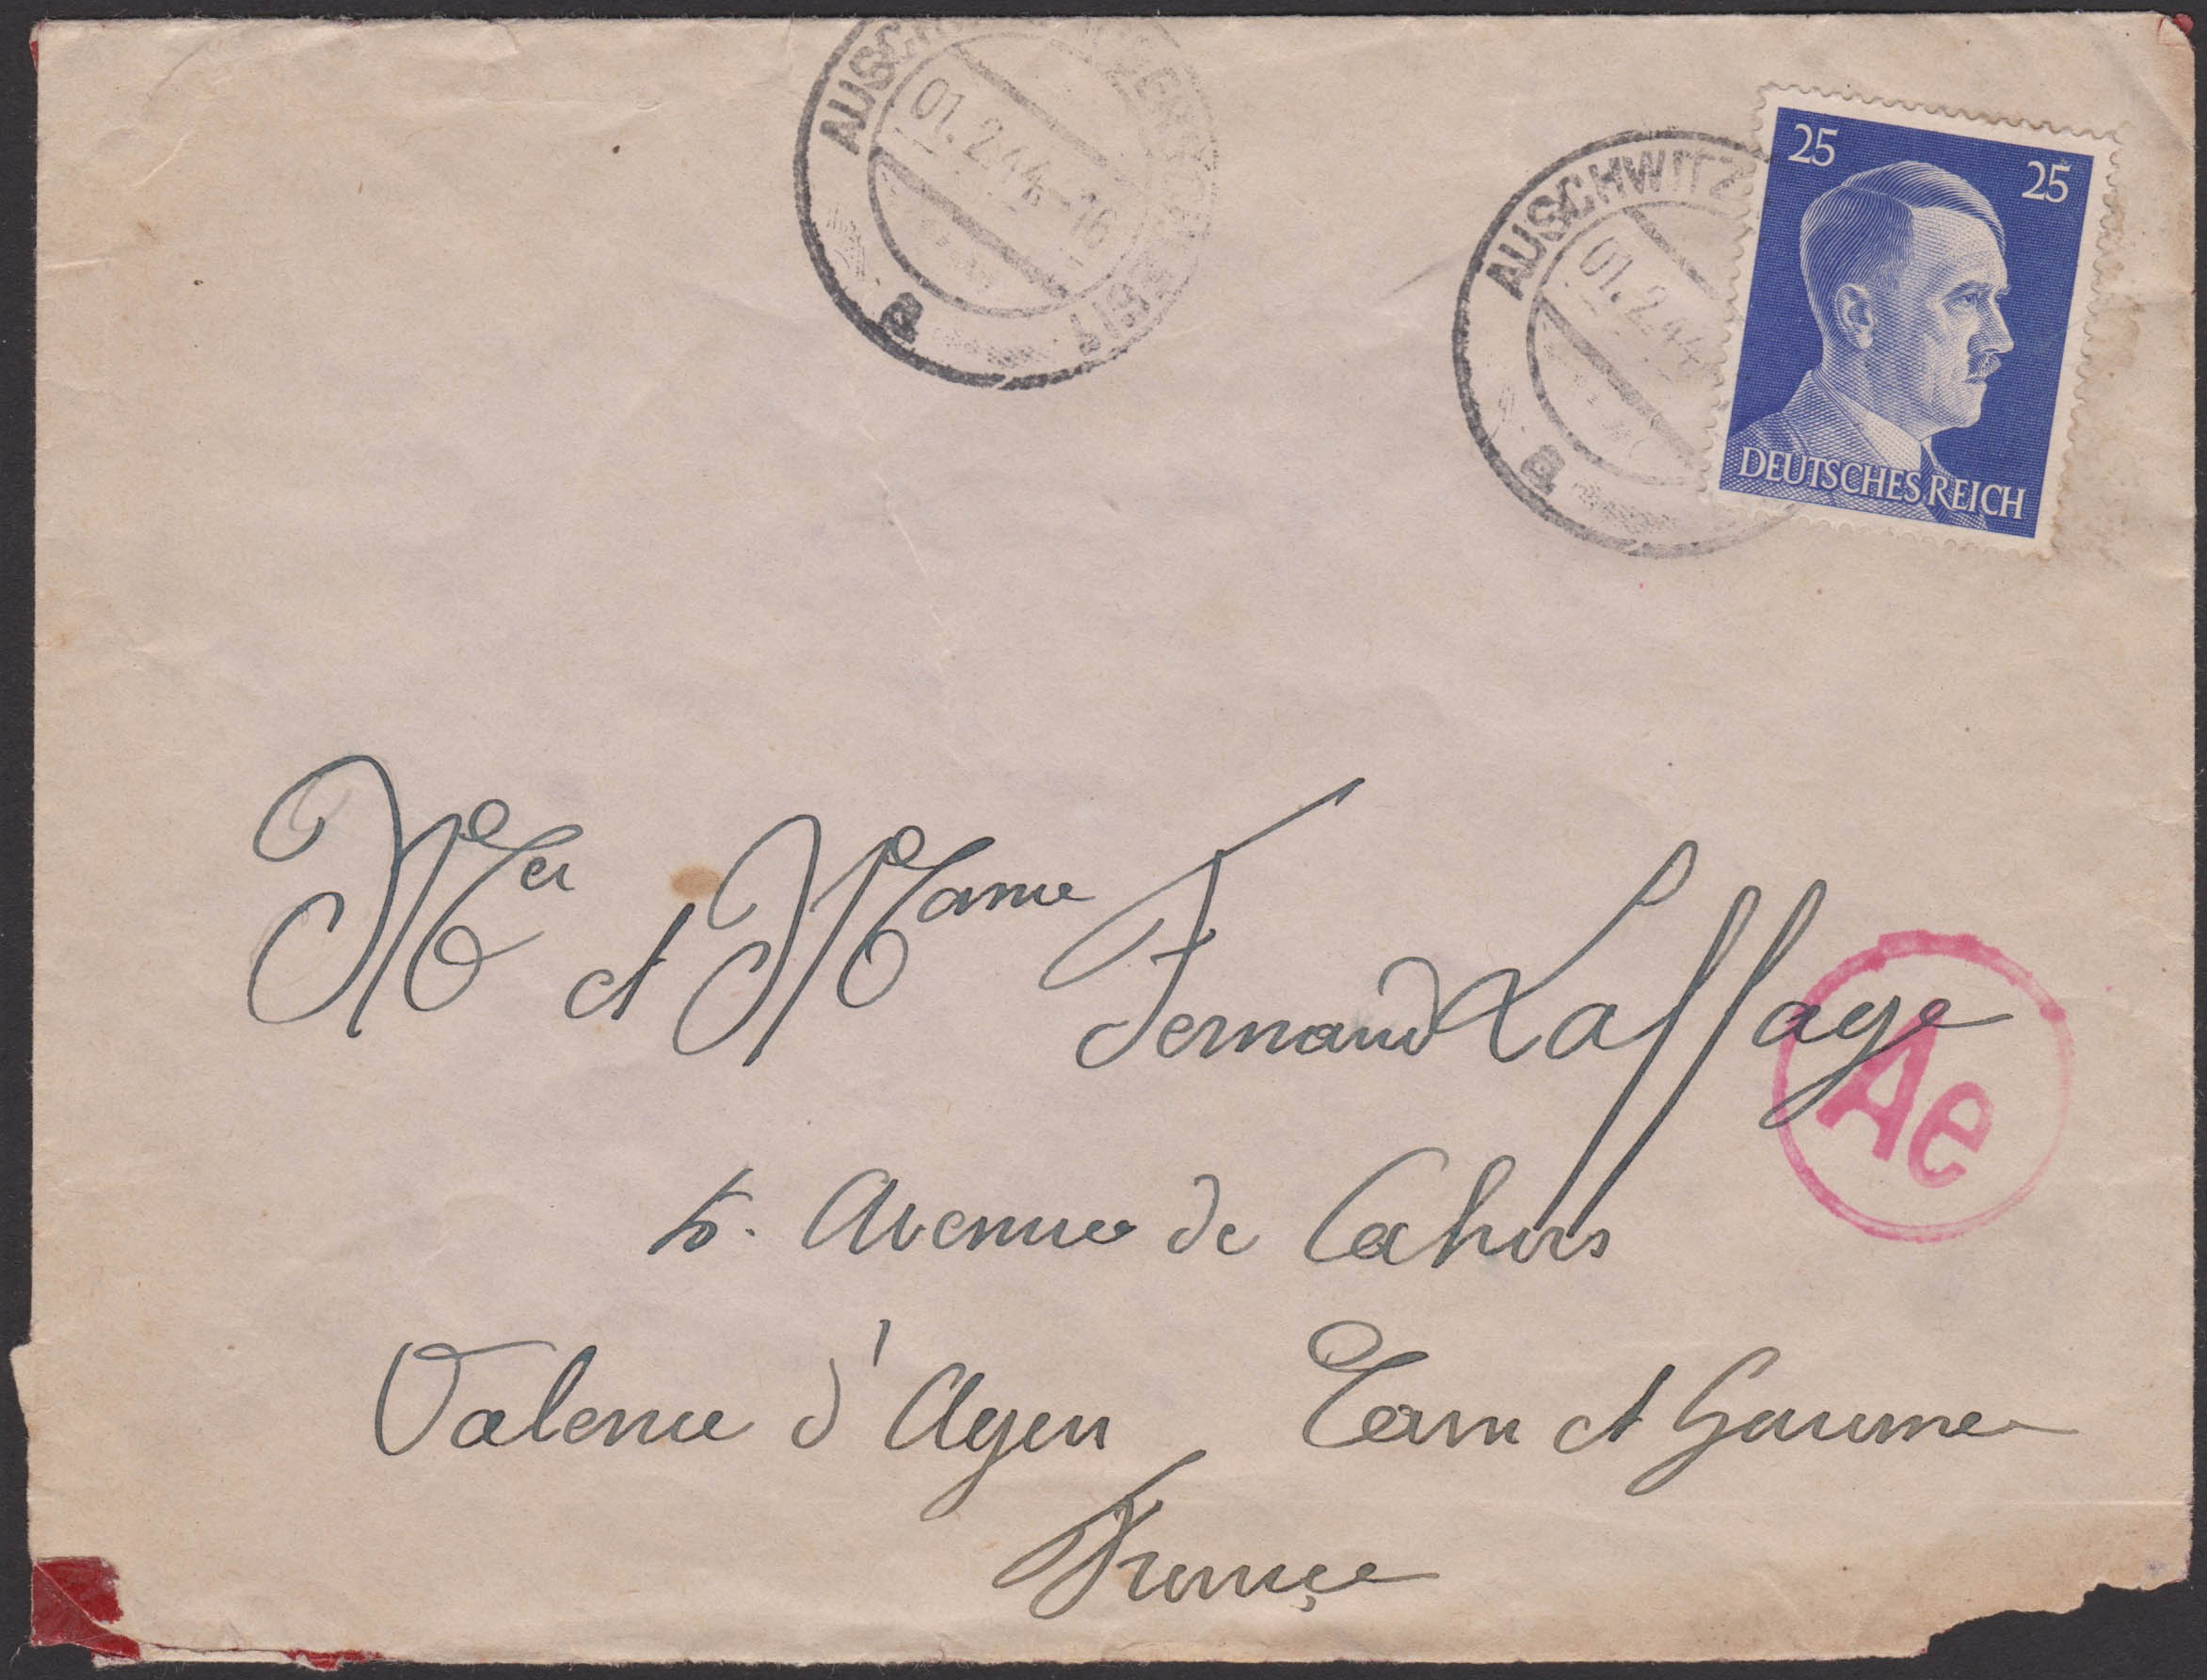 AUSCHWITZ OBERSCHLESIEN
01.2.44-16
a
AUSCHWITZ
01.2.44
a
25 25
DEUTSCHES REICH
Mr et Mame Fernand Laffage
Ae
5. Avenue de Cahors
Valence d'Agen Tarn et Garonne
France